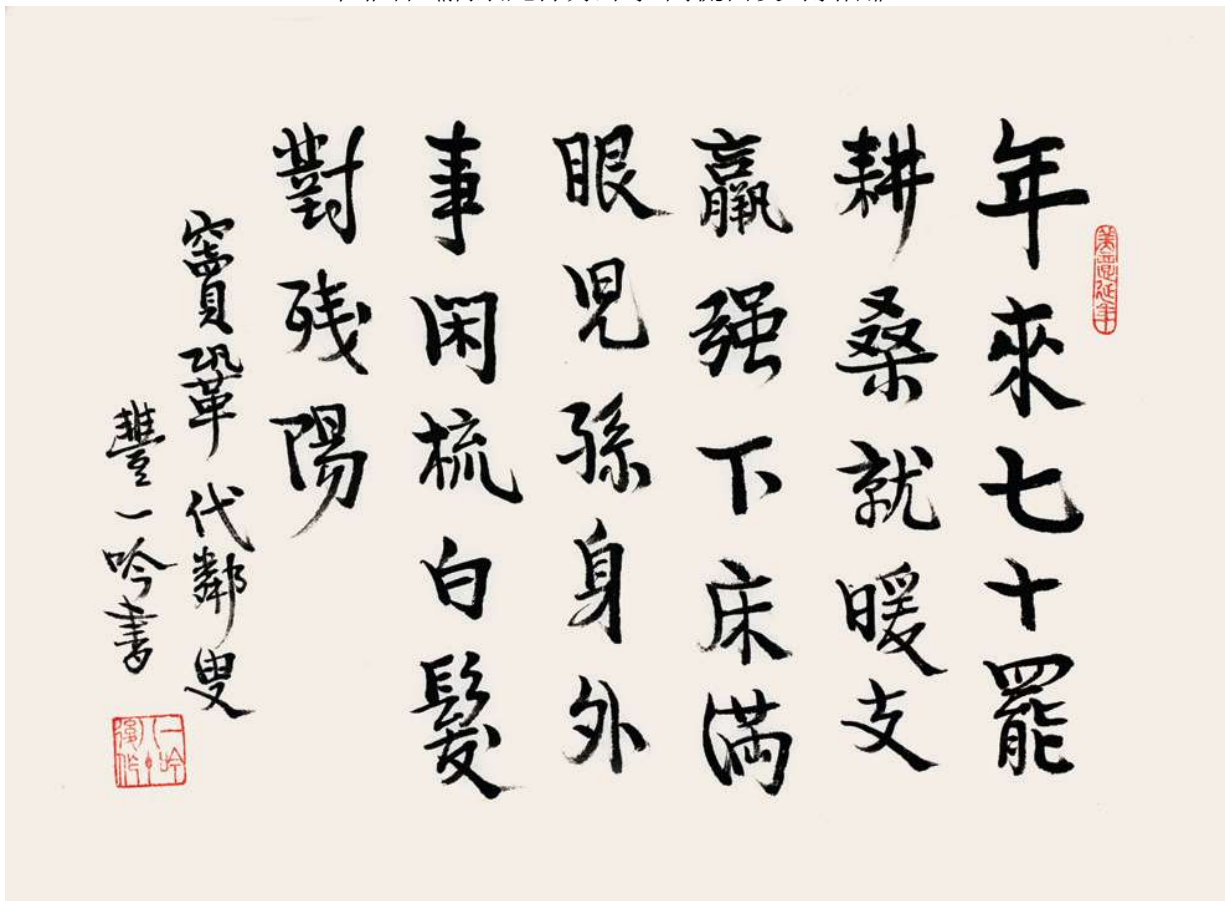 年來七十罷
耕桑就暖支
羸强下床满
眼児孫身外
事閑梳白髮
對残陽
竇鞏代鄰叟
豐一吟書
美意延年